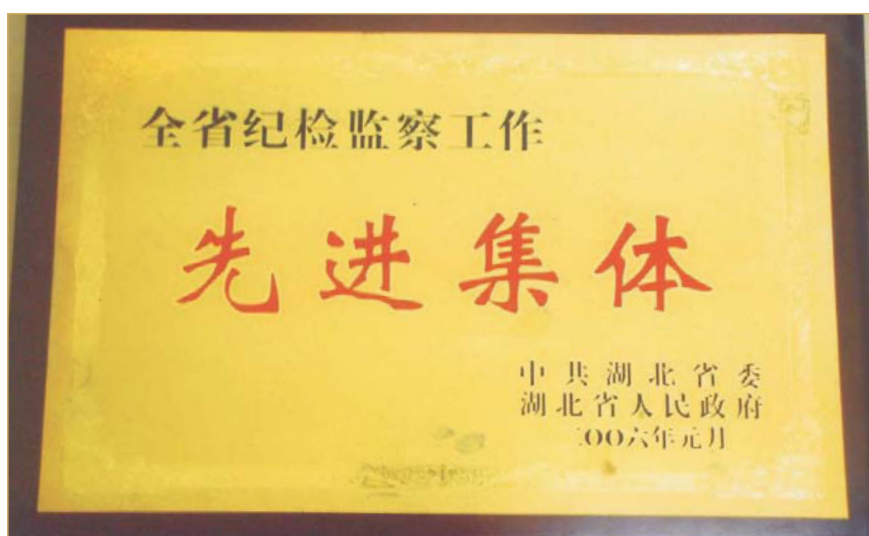 全省纪检监察工作
先进集体
中共湖北省委
湖北省人民政府
二〇〇六年元月